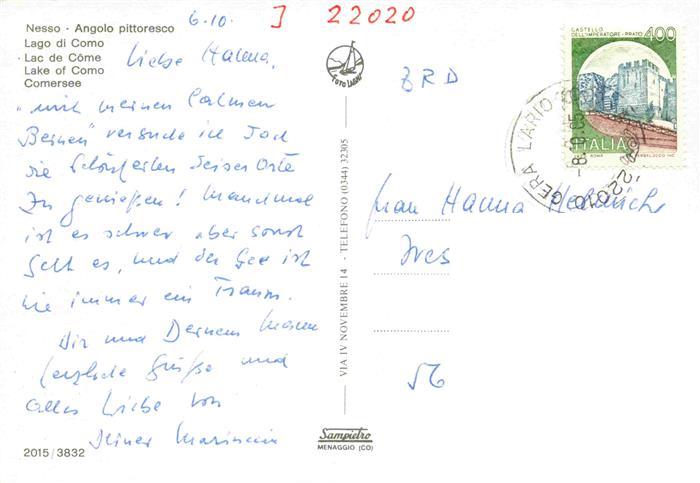 6.10. I 22020
Nesso - Angolo pittoresco
Lago di Como
Lac de Côme
Lake of Como
Comersee
Liebe Hanna,
"mit meinen lahmen
Beinen" versuche ich doch
die Schönheiten dieser Orte
zu genießen! Manchmal
ist es schwer aber sonst
geht es, und der See ist
wie immer ein Traum.
Dir und Deinem Mann
herzliche Grüße und
alles Liebe von
Deiner
2015/3832
FOTO
VIA IV NOVEMBRE 14 - TELEFONO (0344) 32305
Sampietro
MENAGGIO (CO)
BRD
CASTELLO
DELL'IMPERATORE - PRATO
400
ITALIA
GERA LARIO
22010
Frau Hanna
56